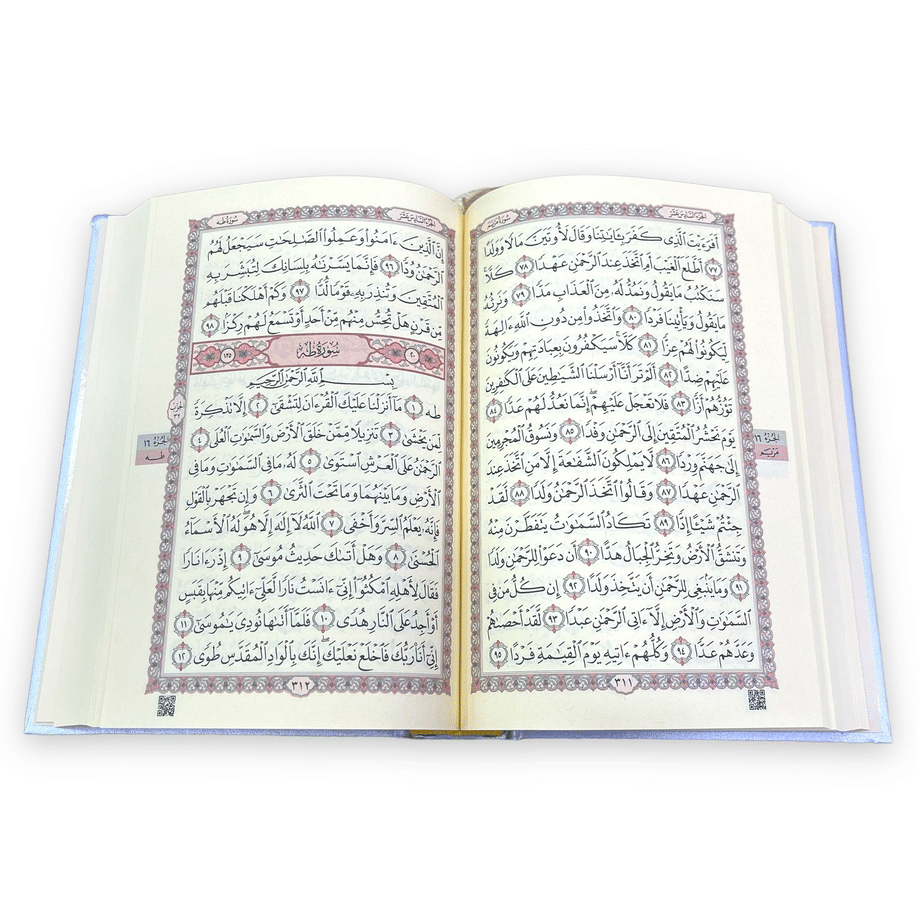 الجزء السادس عشر
سورة مريم
أَفَرَءَيْتَ ٱلَّذِى كَفَرَ بِـَٔايَٰتِنَا وَقَالَ لَأُوتَيَنَّ مَالًا وَوَلَدًا
٧٧ أَطَّلَعَ ٱلْغَيْبَ أَمِ ٱتَّخَذَ عِندَ ٱلرَّحْمَٰنِ عَهْدًا ٧٨ كَلَّا
سَنَكْتُبُ مَا يَقُولُ وَنَمُدُّ لَهُۥ مِنَ ٱلْعَذَابِ مَدًّا ٧٩ وَنَرِثُهُۥ
مَا يَقُولُ وَيَأْتِينَا فَرْدًا ٨٠ وَٱتَّخَذُوا۟ مِن دُونِ ٱللَّهِ ءَالِهَةً
لِّيَكُونُوا۟ لَهُمْ عِزًّا ٨١ كَلَّا سَيَكْفُرُونَ بِعِبَادَتِهِمْ وَيَكُونُونَ
عَلَيْهِمْ ضِدًّا ٨٢ أَلَمْ تَرَ أَنَّآ أَرْسَلْنَا ٱلشَّيَٰطِينَ عَلَى ٱلْكَٰفِرِينَ
تَؤُزُّهُمْ أَزًّا ٨٣ فَلَا تَعْجَلْ عَلَيْهِمْ إِنَّمَا نَعُدُّ لَهُمْ عَدًّا ٨٤
يَوْمَ نَحْشُرُ ٱلْمُتَّقِينَ إِلَى ٱلرَّحْمَٰنِ وَفْدًا ٨٥ وَنَسُوقُ ٱلْمُجْرِمِينَ
إِلَىٰ جَهَنَّمَ وِرْدًا ٨٦ لَّا يَمْلِكُونَ ٱلشَّفَٰعَةَ إِلَّا مَنِ ٱتَّخَذَ عِندَ
ٱلرَّحْمَٰنِ عَهْدًا ٨٧ وَقَالُوا۟ ٱتَّخَذَ ٱلرَّحْمَٰنُ وَلَدًا ٨٨ لَّقَدْ
جِئْتُمْ شَيْـًٔا إِدًّا ٨٩ تَكَادُ ٱلسَّمَٰوَٰتُ يَتَفَطَّرْنَ مِنْهُ
وَتَنشَقُّ ٱلْأَرْضُ وَتَخِرُّ ٱلْجِبَالُ هَدًّا ٩٠ أَن دَعَوْا۟ لِلرَّحْمَٰنِ وَلَدًا
٩١ وَمَا يَنۢبَغِى لِلرَّحْمَٰنِ أَن يَتَّخِذَ وَلَدًا ٩٢ إِن كُلُّ مَن فِى
ٱلسَّمَٰوَٰتِ وَٱلْأَرْضِ إِلَّآ ءَاتِى ٱلرَّحْمَٰنِ عَبْدًا ٩٣ لَّقَدْ أَحْصَىٰهُمْ
وَعَدَّهُمْ عَدًّا ٩٤ وَكُلُّهُمْ ءَاتِيهِ يَوْمَ ٱلْقِيَٰمَةِ فَرْدًا ٩٥
٣١١
الجزء ١٦
مريم
الجزء السادس عشر
سورة طه
إِنَّ ٱلَّذِينَ ءَامَنُوا۟ وَعَمِلُوا۟ ٱلصَّٰلِحَٰتِ سَيَجْعَلُ لَهُمُ
ٱلرَّحْمَٰنُ وُدًّا ٩٦ فَإِنَّمَا يَسَّرْنَٰهُ بِلِسَانِكَ لِتُبَشِّرَ بِهِ
ٱلْمُتَّقِينَ وَتُنذِرَ بِهِۦ قَوْمًا لُّدًّا ٩٧ وَكَمْ أَهْلَكْنَا قَبْلَهُم
مِّن قَرْنٍ هَلْ تُحِسُّ مِنْهُم مِّنْ أَحَدٍ أَوْ تَسْمَعُ لَهُمْ رِكْزًۢا ٩٨
٢٠ سورة طه ١٣٥
بِسْمِ ٱللَّهِ ٱلرَّحْمَٰنِ ٱلرَّحِيمِ
طه ١ مَآ أَنزَلْنَا عَلَيْكَ ٱلْقُرْءَانَ لِتَشْقَىٰٓ ٢ إِلَّا تَذْكِرَةً
لِّمَن يَخْشَىٰ ٣ تَنزِيلًا مِّمَّنْ خَلَقَ ٱلْأَرْضَ وَٱلسَّمَٰوَٰتِ ٱلْعُلَى ٤
ٱلرَّحْمَٰنُ عَلَى ٱلْعَرْشِ ٱسْتَوَىٰ ٥ لَهُۥ مَا فِى ٱلسَّمَٰوَٰتِ وَمَا فِى
ٱلْأَرْضِ وَمَا بَيْنَهُمَا وَمَا تَحْتَ ٱلثَّرَىٰ ٦ وَإِن تَجْهَرْ بِٱلْقَوْلِ
فَإِنَّهُۥ يَعْلَمُ ٱلسِّرَّ وَأَخْفَى ٧ ٱللَّهُ لَآ إِلَٰهَ إِلَّا هُوَ لَهُ ٱلْأَسْمَآءُ
ٱلْحُسْنَىٰ ٨ وَهَلْ أَتَىٰكَ حَدِيثُ مُوسَىٰٓ ٩ إِذْ رَءَا نَارًا
فَقَالَ لِأَهْلِهِ ٱمْكُثُوٓا۟ إِنِّىٓ ءَانَسْتُ نَارًا لَّعَلِّىٓ ءَاتِيكُم مِّنْهَا بِقَبَسٍ
أَوْ أَجِدُ عَلَى ٱلنَّارِ هُدًى ١٠ فَلَمَّآ أَتَىٰهَا نُودِىَ يَٰمُوسَىٰٓ ١١
إِنِّىٓ أَنَا۠ رَبُّكَ فَٱخْلَعْ نَعْلَيْكَ إِنَّكَ بِٱلْوَادِ ٱلْمُقَدَّسِ طُوًى ١٢
٣١٢
الحزب
٣٢
الجزء ١٦
طه